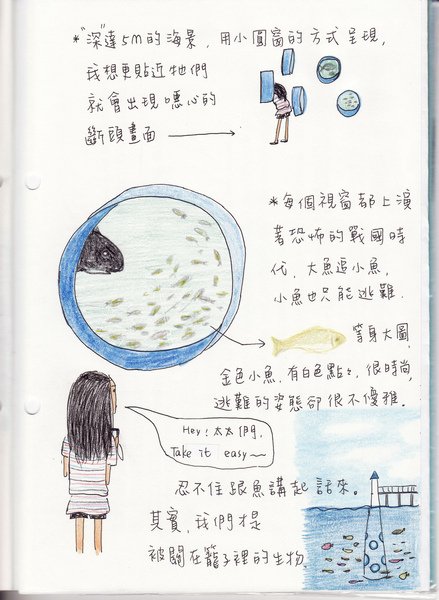 *"深"達5m的海景，用小圓窗的方式呈現，
我想更貼近牠們
就會出現噁心的
斷頭畫面
*每個視窗都上演
著恐怖的戰國時
代，大魚追小魚，
小魚也只能逃難.
等身大圖,
金色小魚，有白色點點，很時尚,
逃難的姿態卻很不優雅.
Hey！太太們，
Take it easy~
忍不住跟魚講起話來。
其實，我們才是
被關在籠子裡的生物